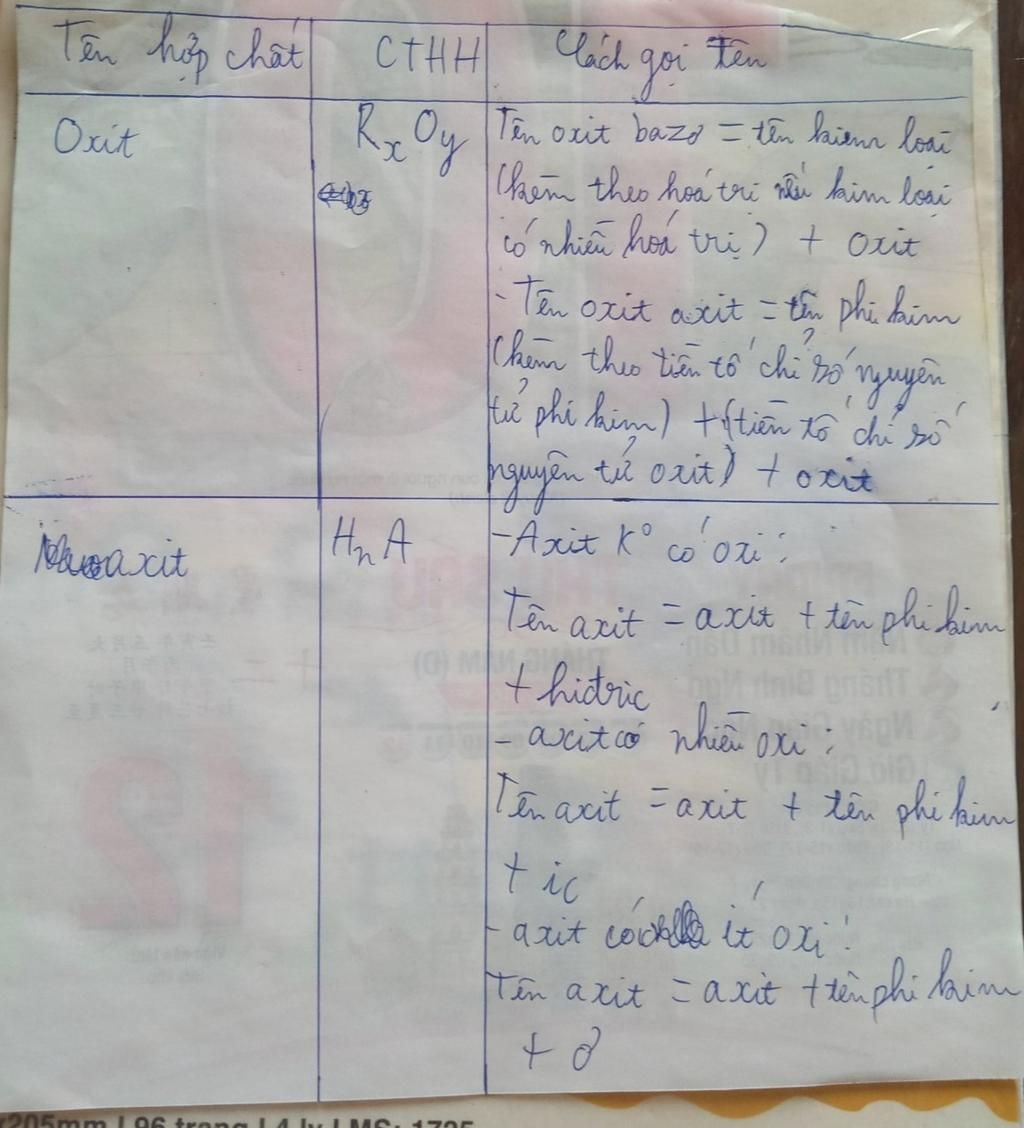 Tên hợp chất
CTHH
Cách gọi tên
Oxit
RxOy
Tên oxit bazơ = tên kiem loại
(kèm theo hoá trị nếu kim loại
có nhiều hoá trị) + oxit
- Tên oxit axit = tên phi kim
(kèm theo tiền tố chỉ số nguyên
tử phi kim) + (tiền tố chỉ số
nguyên tử oxit) + oxit
axit
HnA
- Axit K° có oxi:
Tên axit = axit + tên phi kim
+ hiđric
- axit có nhiều oxi:
Tên axit = axit + tên phi kim
+ ic
- axit có ít oxi:
Tên axit = axit + tên phi kim
+ ơ
205mm | 96 trang | 4 ly | MS: 1795